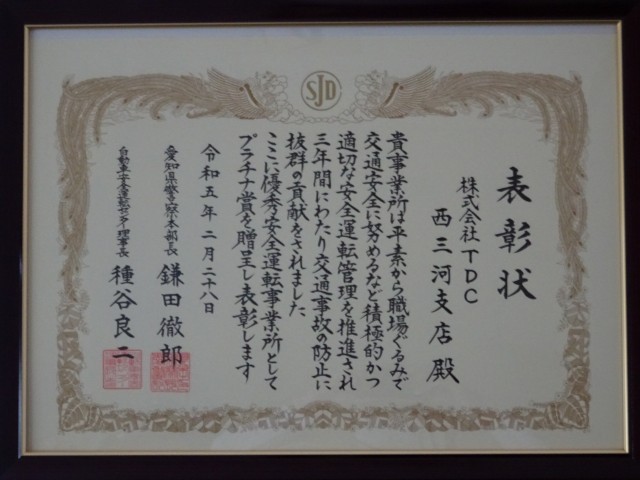 SJD
表彰状
株式会社TDC
西三河支店殿
貴事業所は平素から職場ぐるみで
交通安全に努めるなど積極的かつ
適切な安全運転管理を推進され
三年間にわたり交通事故の防止に
抜群の貢献をされました
ここに優秀安全運転事業所として
プラチナ賞を贈呈し表彰します
令和五年二月二十八日
愛知県警察本部長 鎌田徹郎
自動車安全運転センター理事長 種谷良二